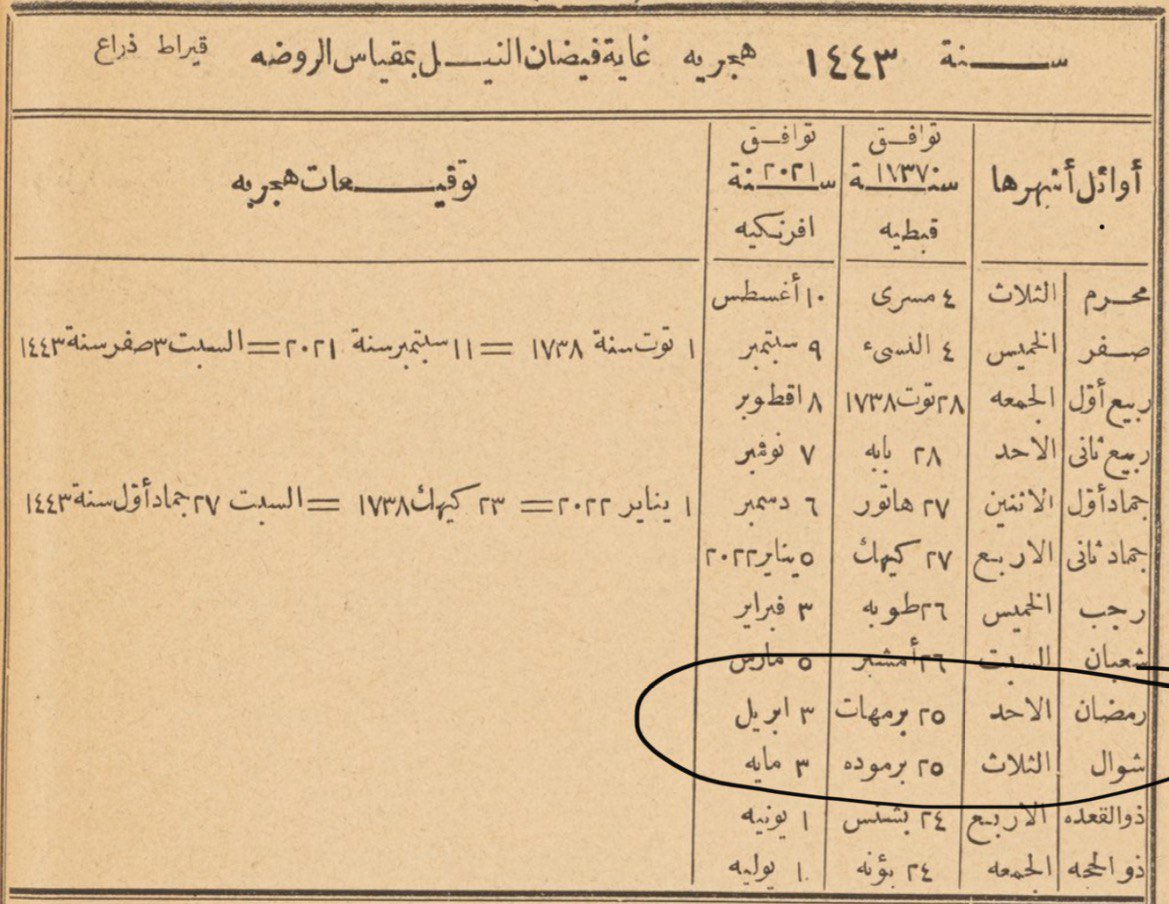 سنة ١٤٤٣ هجريه غاية فيضان النيل بمقياس الروضه قيراط ذراع
أوائل أشهرها
توافق سنة ١٧٣٧ قبطيه
توافق سنة ٢٠٢١ افرنكيه
توقيعات هجريه
محرم الثلاث ٤ مسرى ١٠ أغسطس
صفر الخميس ٤ النسىء ٩ سبتمبر ١ توت سنة ١٧٣٨ = ١١ سبتمبر سنة ٢٠٢١ = السبت ٣ صفر سنة ١٤٤٣
ربيع أول الجمعه ٢٨ توت ١٧٣٨ ٨ اقطوبر
ربيع ثانى الاحد ٢٨ بابه ٧ نوفمبر
جماد أول الاثنين ٢٧ هاتور ٦ دسمبر ١ يناير ٢٠٢٢ = ٢٣ كيهك ١٧٣٨ = السبت ٢٧ جماد أول سنة ١٤٤٣
جماد ثانى الاربع ٢٧ كيهك ٥ يناير ٢٠٢٢
رجب الخميس ٢٦ طوبه ٣ فبراير
شعبان السبت ٢٦ أمشير ٥ مارس
رمضان الاحد ٢٥ برمهات ٣ ابريل
شوال الثلاث ٢٥ برموده ٣ مايه
ذوالقعده الاربع ٢٤ بشنس ١ يونيه
ذوالحجه الجمعه ٢٤ بؤنه ١ يوليه